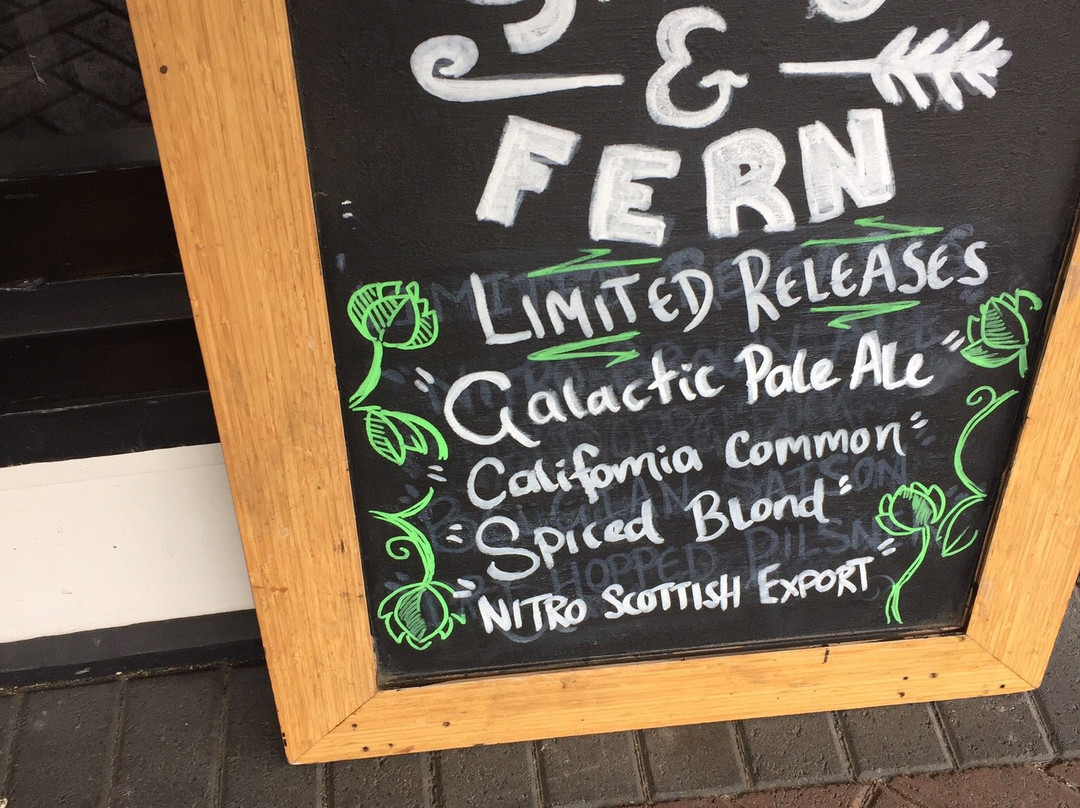 &
FERN
LIMITED RELEASES
"Galactic Pale Ale"
"California Common"
"Spiced Blond"
"NITRO SCOTTISH EXPORT"